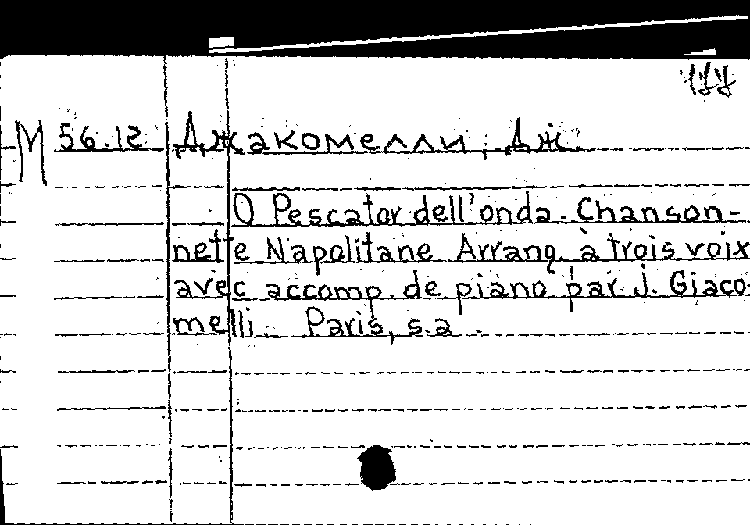 177
М 56.12 Джакомелли, Дж.
O Pescator dell'onda. Chanson-
nette Napolitane Arrang. à trois voix
avec accomp. de piano par J. Giaco-
melli. Paris, s.a.